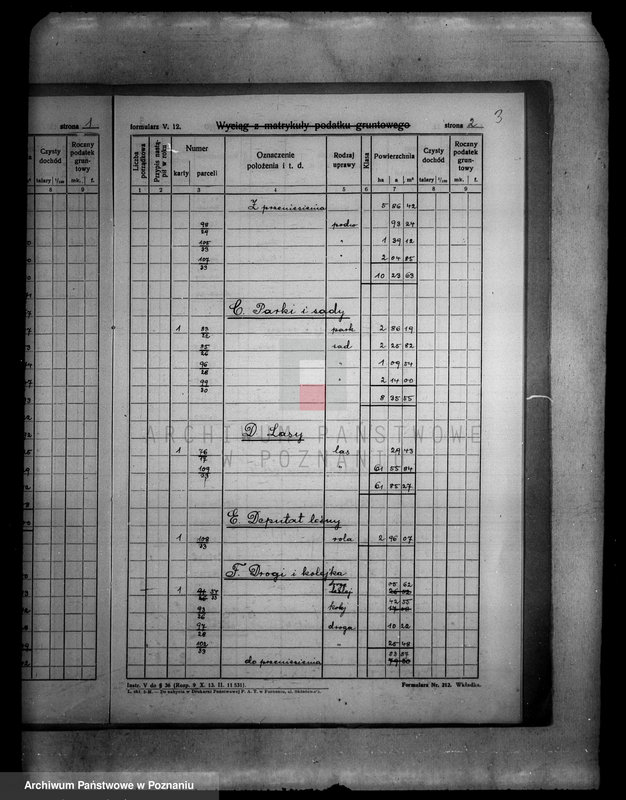 strona 1
Czysty dochód
Roczny podatek grun- towy
talary 1/100
mk. f.
8 9
3
formularz V. 12. Wyciąg z matrykuły podatku gruntowego strona 2
Liczba porządkowa
Przypis nastą- pił w roku
Numer
karty parceli
Oznaczenie położenia i t. d.
Rodzaj uprawy
Klasa
Powierzchnia
ha a m²
Czysty dochód
talary 1/100
Roczny podatek grun- towy
mk. f.
1 2 3 4 5 6 7 8 9
Z przeniesienia 5 86 42
98/29 podw. 93 24
105/33 " 1 39 12
107/33 " 2 04 85
10 23 63
C. Parki i sady
1 33/22 park 2 86 19
35/26 sad 2 25 82
96/28 " 1 09 54
99/30 " 2 14 00
8 35 55
D. Lasy
1 76/17 las 29 43
109/33 " 61 55 84
61 85 27
E. Deputat leśny
1 108/33 rola 2 96 07
F. Drogi i kolejka
05 62
1
42 55
93/26 kolej
97/28 droga 10 22
102/33 " 25 48
83 87
do przeniesienia
Instr. V do § 36 (Rozp. 9 X. 13. II. 11 531). Formularz Nr. 212. Wkładka.
ARCHIWUM PAŃSTWOWE
W POZNANIU
Archiwum Państwowe w Poznaniu